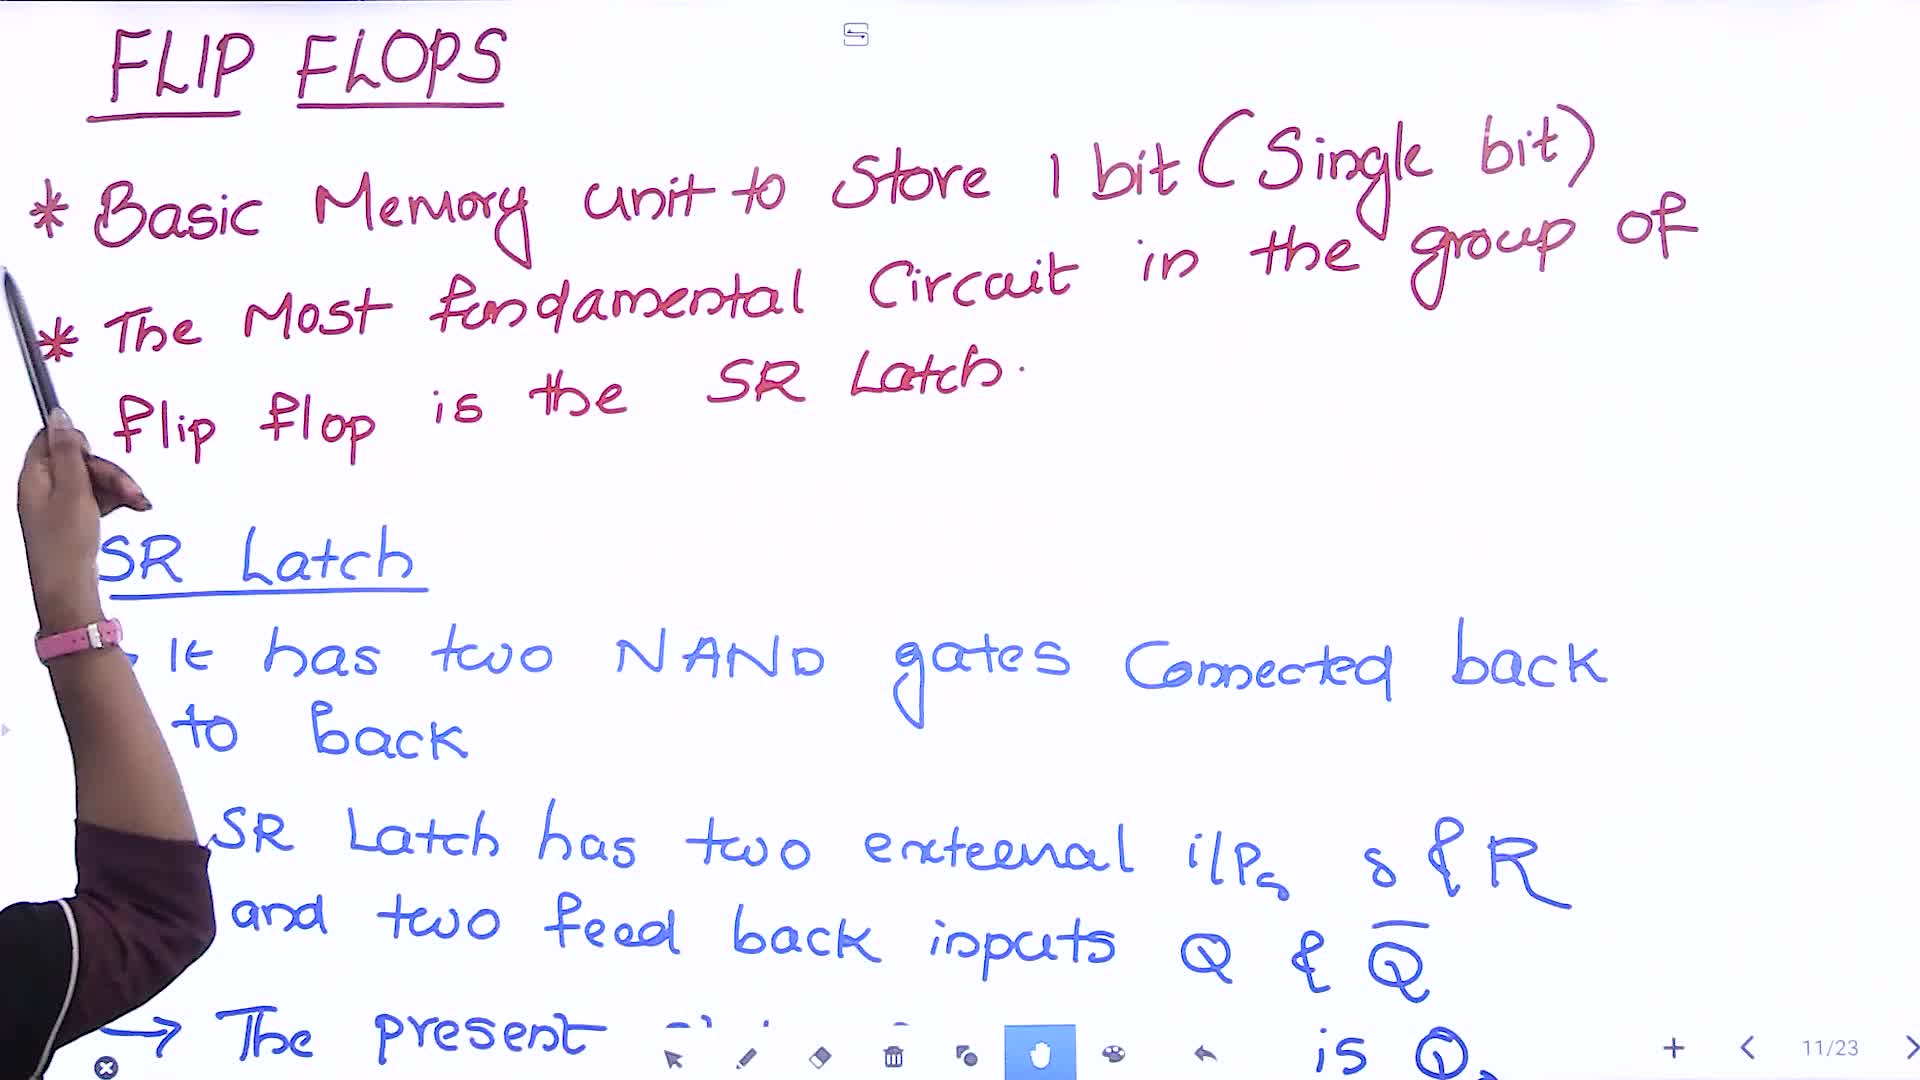 FLIP FLOPS
* Basic Memory unit to Store 1 bit (Single bit)
* The Most fundamental Circuit in the group of
flip flop is the SR Latch.
SR Latch
It has two NAND gates Connected back
to back
SR Latch has two external i/Ps S & R
and two feed back inputs Q & Q̅
→ The present is Q
11/23